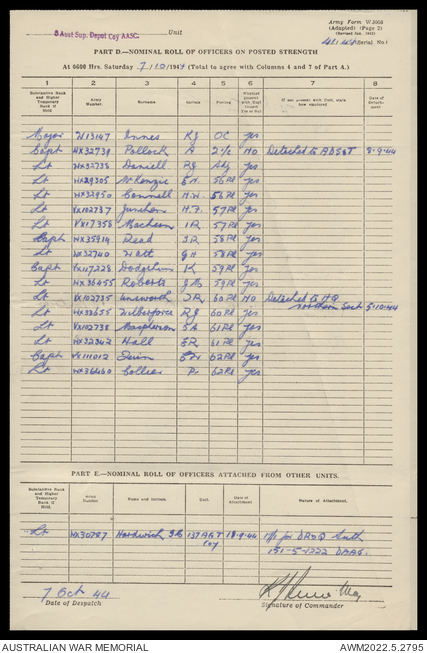 Army Form W.3008
(Adapted) (Page 2)
(Revised Jan. 1943)
8 Aust Sup. Depot Coy AASC. Unit
(Serial No.)
PART D.—NOMINAL ROLL OF OFFICERS ON POSTED STRENGTH
At 0600 Hrs. Saturday 7/10/1944 (Total to agree with Columns 4 and 7 of Part A.)
1 2 3 4 5 6 7 8
Substantive Rank and Higher Temporary Rank if Held. Army Number. Surname Initials Posting Whether present with Unit (insert Yes or No) If not present with Unit, state how employed Date of Detachment
Major WX13147 Innes RJ OC Yes
Capt WX32739 Pollock A 2i/c NO Detached to ADS&T 8-9-44
Lt WX32738 Daniell RJ Adj Yes
Lt WX29305 McKenzie 56 Pl Yes
Lt WX32950 Connell H.W. 56 Pl Yes
Lt VX102737 H.F. 57 Pl Yes
Lt VX17358 IR 57 Pl Yes
Capt WX35914 Read JR 58 Pl Yes
Lt WX32740 Watt GH 58 Pl Yes
Capt VX117228 Dodgshun K 59 Pl Yes
Lt WX36455 Roberts 59 Pl Yes
Lt VX102735 Unsworth JR 60 Pl NO Detached to HQ
Northern Sect 5-10-44
Lt WX33655 Wilberforce RJ 60 Pl Yes
Lt VX102738 Macpherson SA 61 Pl Yes
Lt WX32342 Hall ER 61 Pl Yes
Capt VX111012 Quinn 62 Pl Yes
Lt WX36460 Collier P. 62 Pl Yes
PART E.—NOMINAL ROLL OF OFFICERS ATTACHED FROM OTHER UNITS.
Substantive Rank and Higher Temporary Rank if Held. Army Number Name and Initials. Unit. Date of Attachment Nature of Attachment.
Lt WX30787 Hardwick 137 AGT 18-9-44
Coy 151-5-1222 DAAG.
7 Oct 44
Date of Despatch
Maj
Signature of Commander
AUSTRALIAN WAR MEMORIAL
AWM2022.5.2795